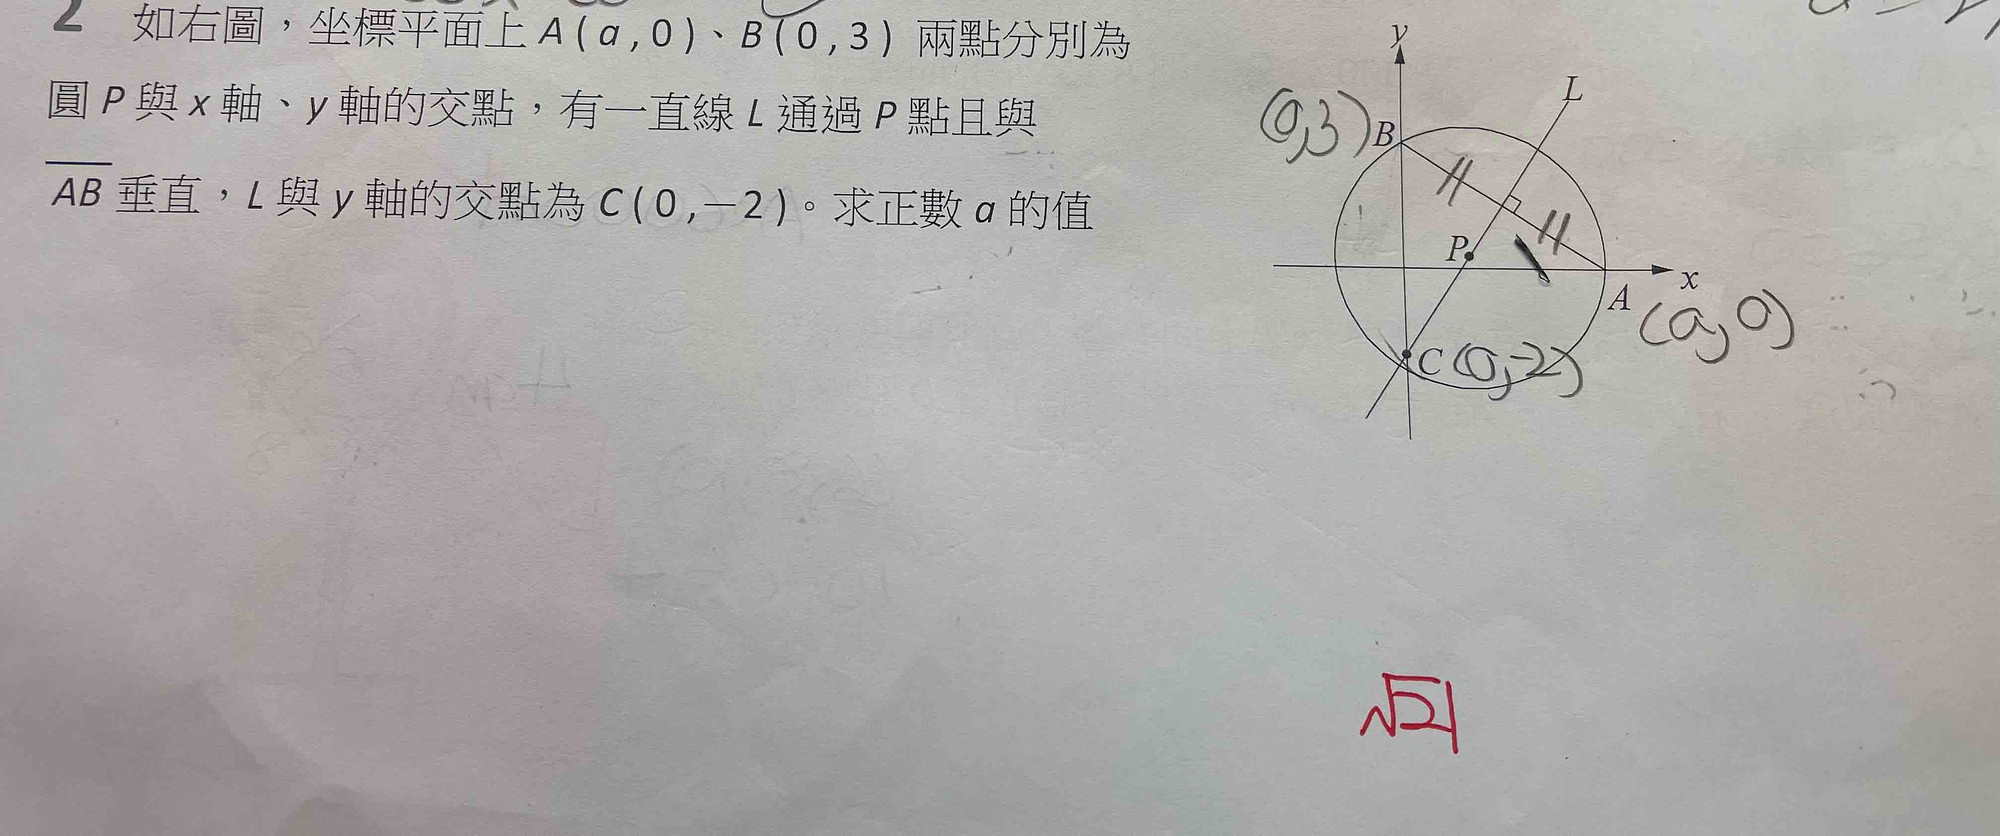 2 如右圖，坐標平面上 A ( a , 0 )、B ( 0 , 3 ) 兩點分別為
圓 P 與 x 軸、y 軸的交點，有一直線 L 通過 P 點且與
AB 垂直，L 與 y 軸的交點為 C ( 0 , －2 )。求正數 a 的值
y
L
(0,3) B
P
x
A
(a,0)
C (0,-2)
√21